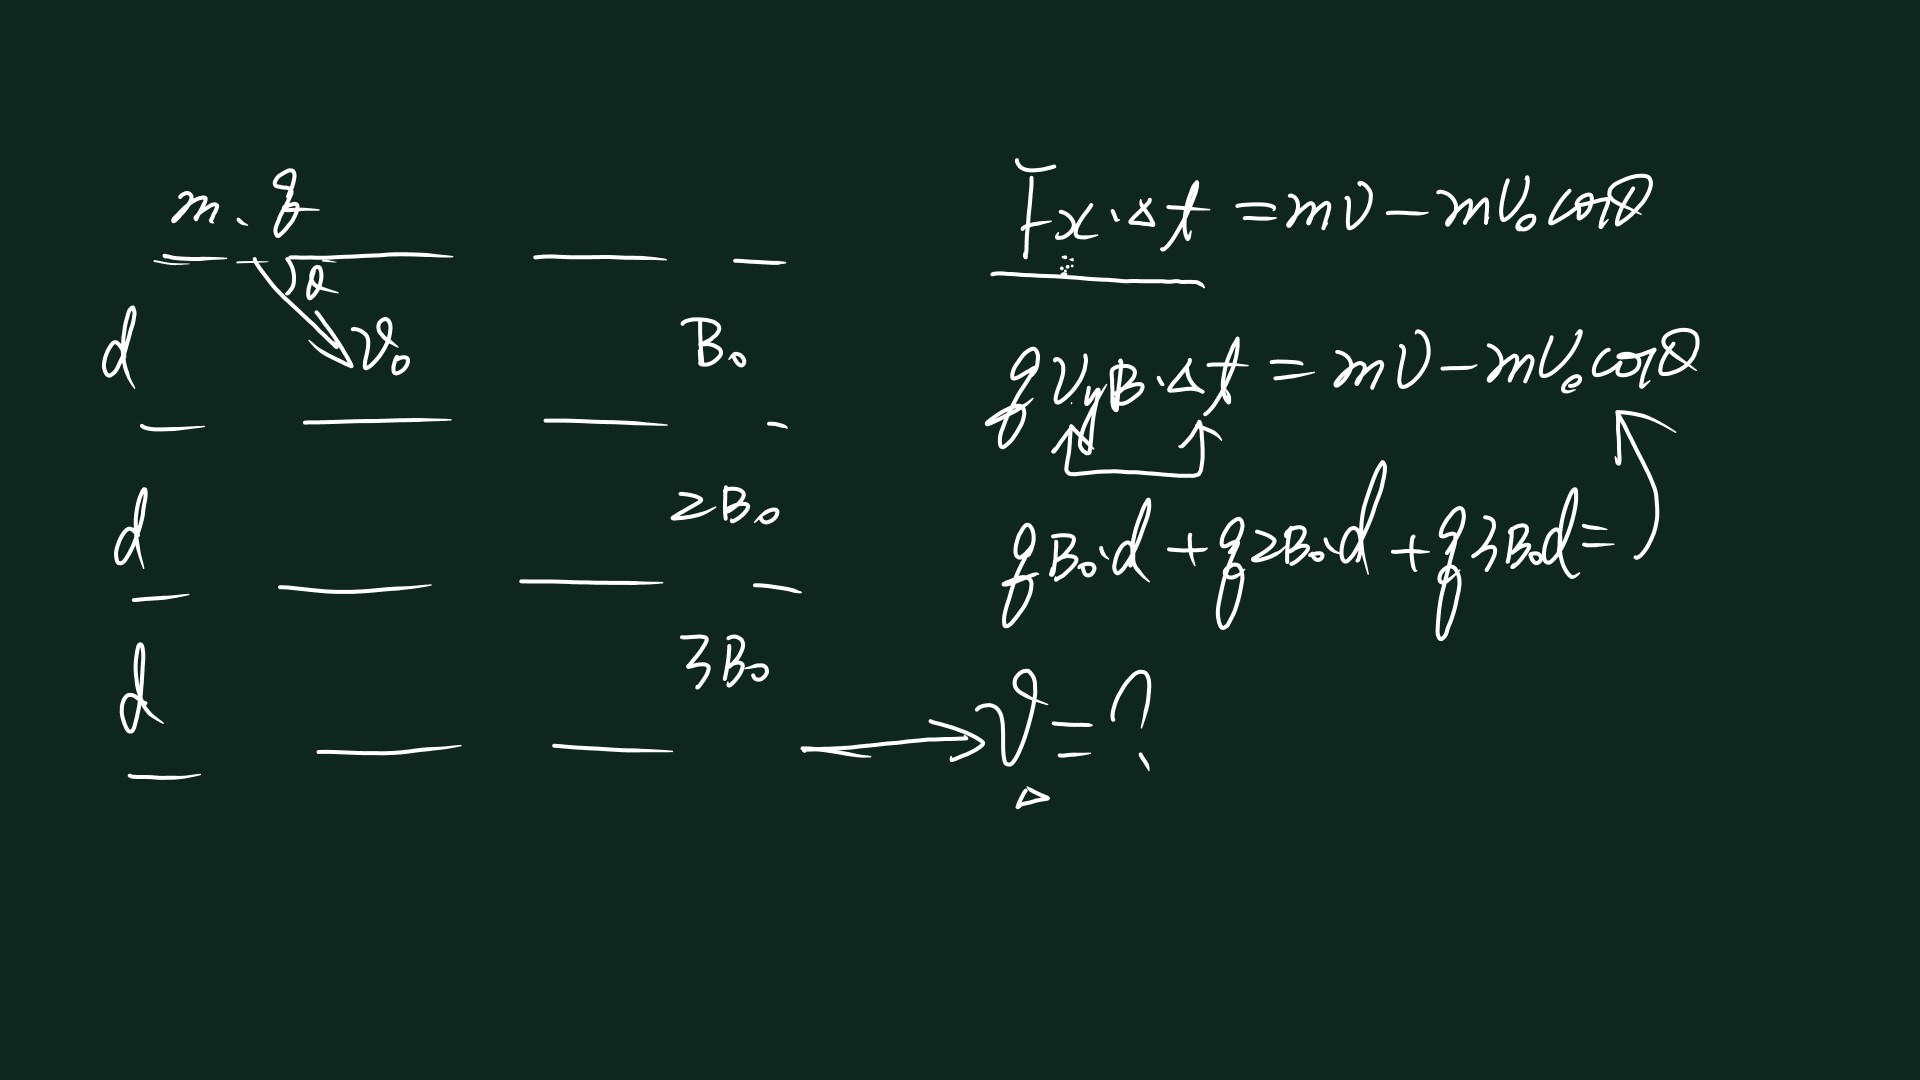 m. q
θ
v₀
d
B₀
d
2B₀
d
3B₀
Fx·Δt = mv - mv₀cosθ
qvyB·Δt = mv - mv₀cosθ
qB₀·d + q2B₀·d + q3B₀d =
v = ?